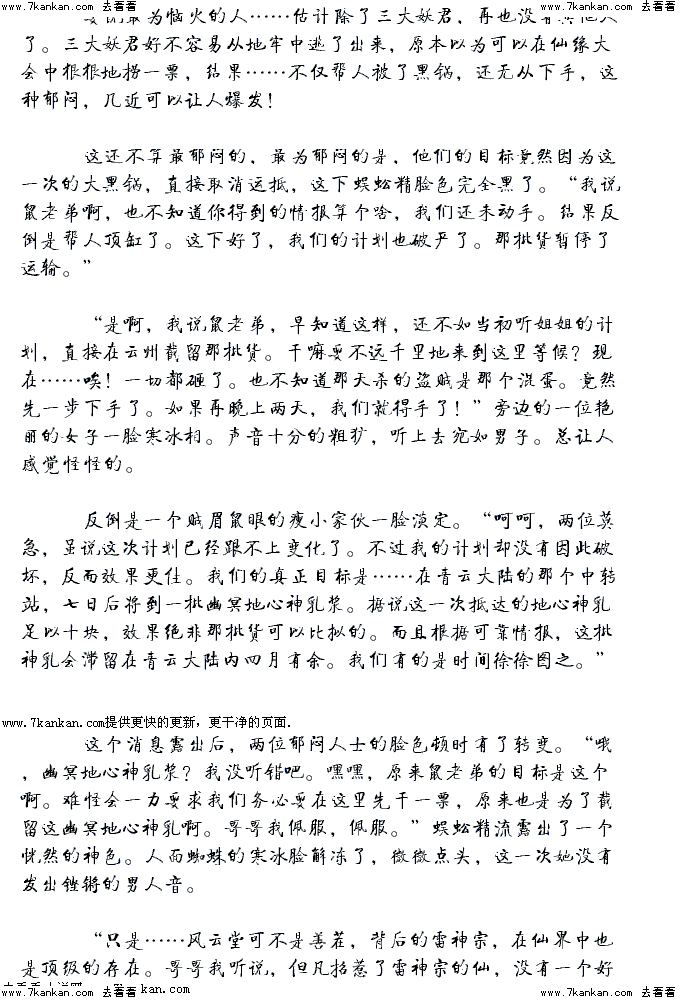 www.7kankan.com 去看看 www.7kankan.com 去看看 www.7kankan.com 去看看 www.7kankan.com 去看看
最为恼火的人……估计除了三大妖君，再也没有其他人
了。三大妖君好不容易从地牢中逃了出来，原本以为可以在仙缘大
会中狠狠地捞一票，结果……不仅帮人被了黑锅，还无从下手，这
种郁闷，几近可以让人爆发！
这还不算最郁闷的，最为郁闷的是，他们的目标竟然因为这
一次的大黑锅，直接取消运抵，这下蜈蚣精脸色完全黑了。“我说
鼠老弟啊，也不知道你得到的情报算个啥，我们还未动手。结果反
倒是帮人顶缸了。这下好了，我们的计划也破产了。那批货暂停了
运输。”
“是啊，我说鼠老弟，早知道这样，还不如当初听姐姐的计
划，直接在云州截留那批货。干嘛要不远千里地来到这里等候？现
在……唉！一切都砸了。也不知道那天杀的盗贼是那个混蛋。竟然
先一步下手了。如果再晚上两天，我们就得手了！”旁边的一位艳
丽的女子一脸寒冰相。声音十分的粗犷，听上去宛如男子。总让人
感觉怪怪的。
反倒是一个贼眉鼠眼的瘦小家伙一脸淡定。“呵呵，两位莫
急，虽说这次计划已经跟不上变化了。不过我的计划却没有因此破
坏，反而效果更佳。我们的真正目标是……在青云大陆的那个中转
站，七日后将到一批幽冥地心神乳浆。据说这一次抵达的地心神乳
足以十块，效果绝非那批货可以比拟的。而且根据可靠情报，这批
神乳会滞留在青云大陆内四月有余。我们有的是时间徐徐图之。”
www.7kankan.com提供更快的更新，更干净的页面.
这个消息露出后，两位郁闷人士的脸色顿时有了转变。“哦
，幽冥地心神乳浆？我没听错吧。嘿嘿，原来鼠老弟的目标是这个
啊。难怪会一力要求我们务必要在这里先干一票，原来也是为了截
留这幽冥地心神乳啊。哥哥我佩服，佩服。”蜈蚣精流露出了一个
恍然的神色。人面蜘蛛的寒冰脸解冻了，微微点头，这一次她没有
发出铿锵的男人音。
“只是……风云堂可不是善茬，背后的雷神宗，在仙界中也
是顶级的存在。哥哥我听说，但凡招惹了雷神宗的仙，没有一个好
kan.com
www.7kankan.com 去看看 www.7kankan.com 去看看 www.7kankan.com 去看看 www.7kankan.com 去看看